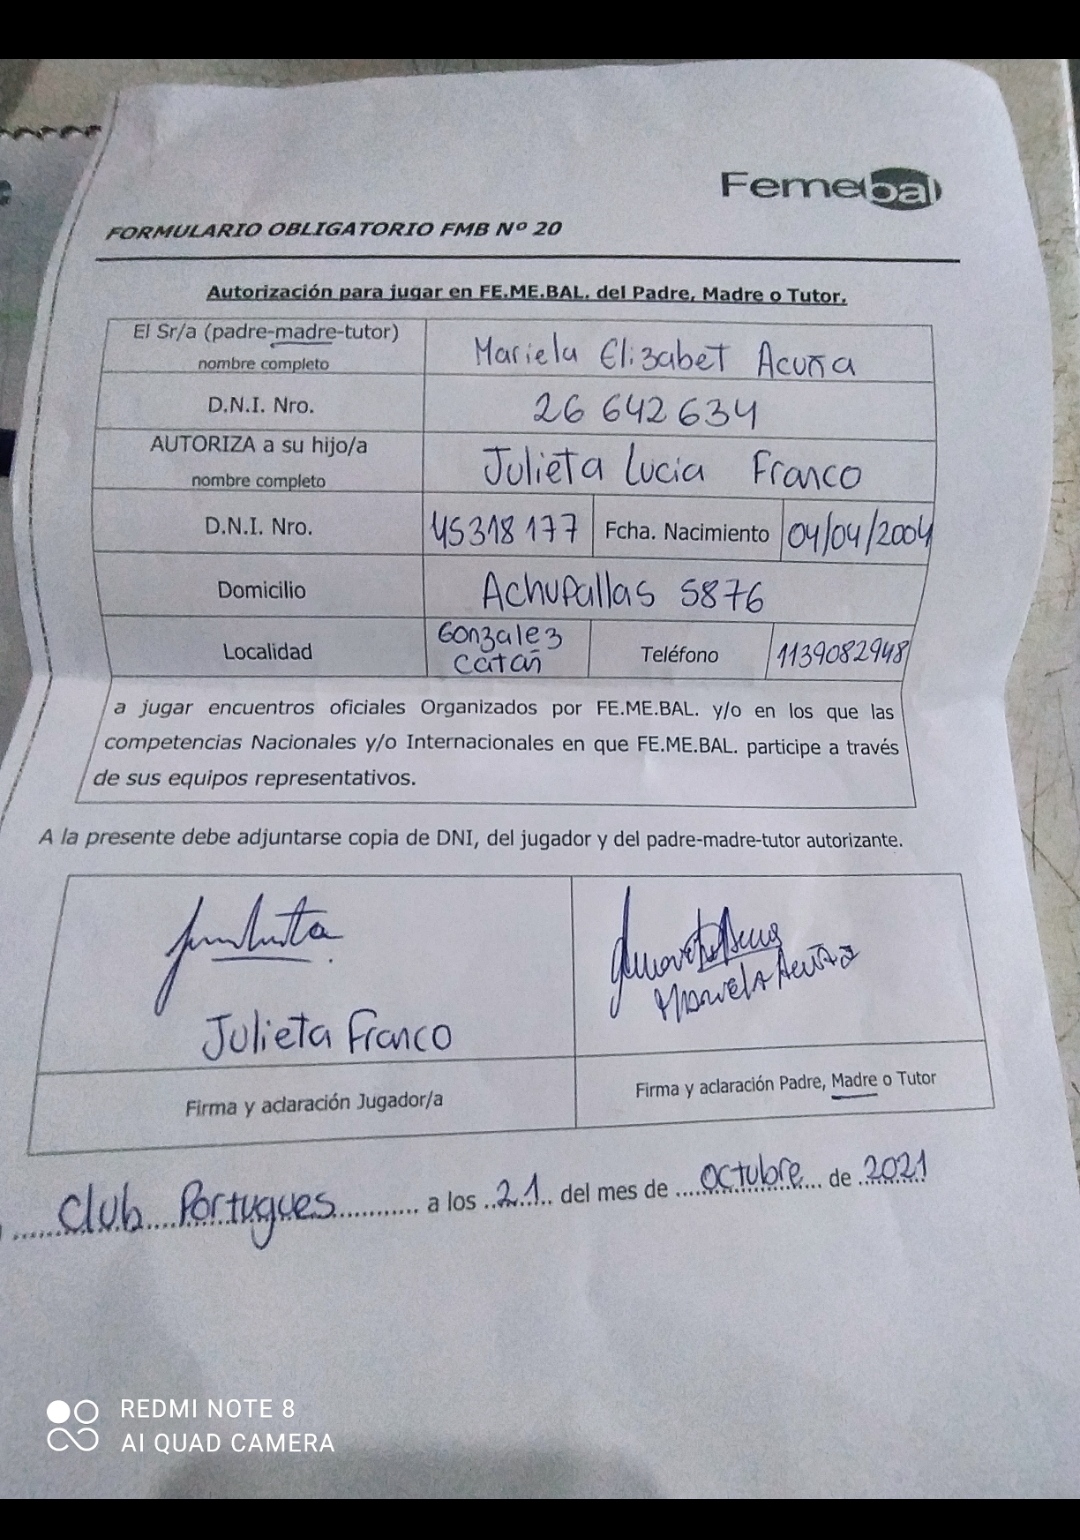 Femebal
FORMULARIO OBLIGATORIO FMB Nº 20
Autorización para jugar en FE.ME.BAL. del Padre, Madre o Tutor.
El Sr/a (padre-madre-tutor)
nombre completo
Mariela Elizabet Acuña
D.N.I. Nro.
26 642 634
AUTORIZA a su hijo/a
nombre completo
Julieta Lucia Franco
D.N.I. Nro.
45318177
Fcha. Nacimiento
04/04/2004
Domicilio
Achupallas 5876
Localidad
Gonzalez
Catañ
Teléfono
1139082948
a jugar encuentros oficiales Organizados por FE.ME.BAL. y/o en los que las
competencias Nacionales y/o Internacionales en que FE.ME.BAL. participe a través
de sus equipos representativos.
A la presente debe adjuntarse copia de DNI, del jugador y del padre-madre-tutor autorizante.
Julieta Franco
Mariela Acuña
Firma y aclaración Jugador/a
Firma y aclaración Padre, Madre o Tutor
Club Portugues a los 21 del mes de octubre de 2021
REDMI NOTE 8
AI QUAD CAMERA